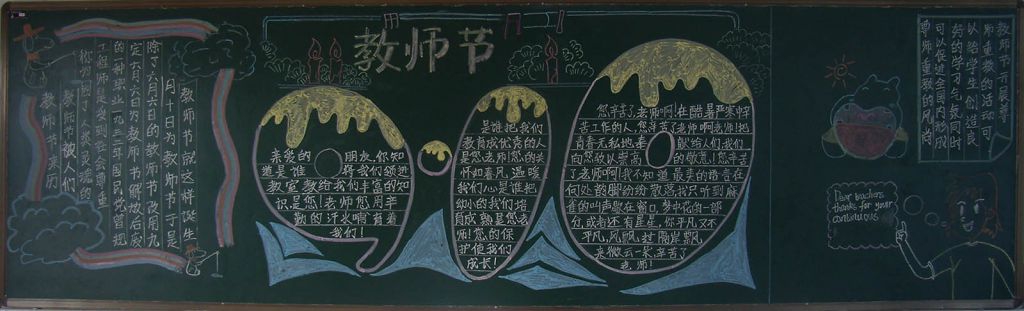 教师节
教师节来历
教师节被人们
的一种职业一九三三年国民党曾规
定六月六日为教师节解放后废
除了六月六日的教师节改用九
月十日为教师节于是
教师节就这样诞生
亲爱的朋友,你知
道是谁将我们领进
教室教给我们丰富的知
识,是您!老师您用辛
勤的汗水哺育着
我们!
是谁把我们
教育成优秀的人
是您老师!您的关
怀如春风,温暖
我们心是谁把
幼小的我们培
育成熟是您老
师!您的保
护使我们
成长!
您辛苦了,老师啊!在酷暑严寒中辛
苦工作的人,您辛苦了老师啊老师!把
青春无私地奉献给人们,我们
向您致以崇高的敬意!您辛苦
了老师啊!我不知道最美的语言在
何处
散落我只听到麻
雀的叫声歇在窗口,梦中花的一部
分,或者还有星星,你平凡又不
平凡
老师!
师重教的活动可
以给学生创造良
好的学习气氛同时
可以促进全国内形成
尊师重教的风尚
Dear teachers
thanks for your